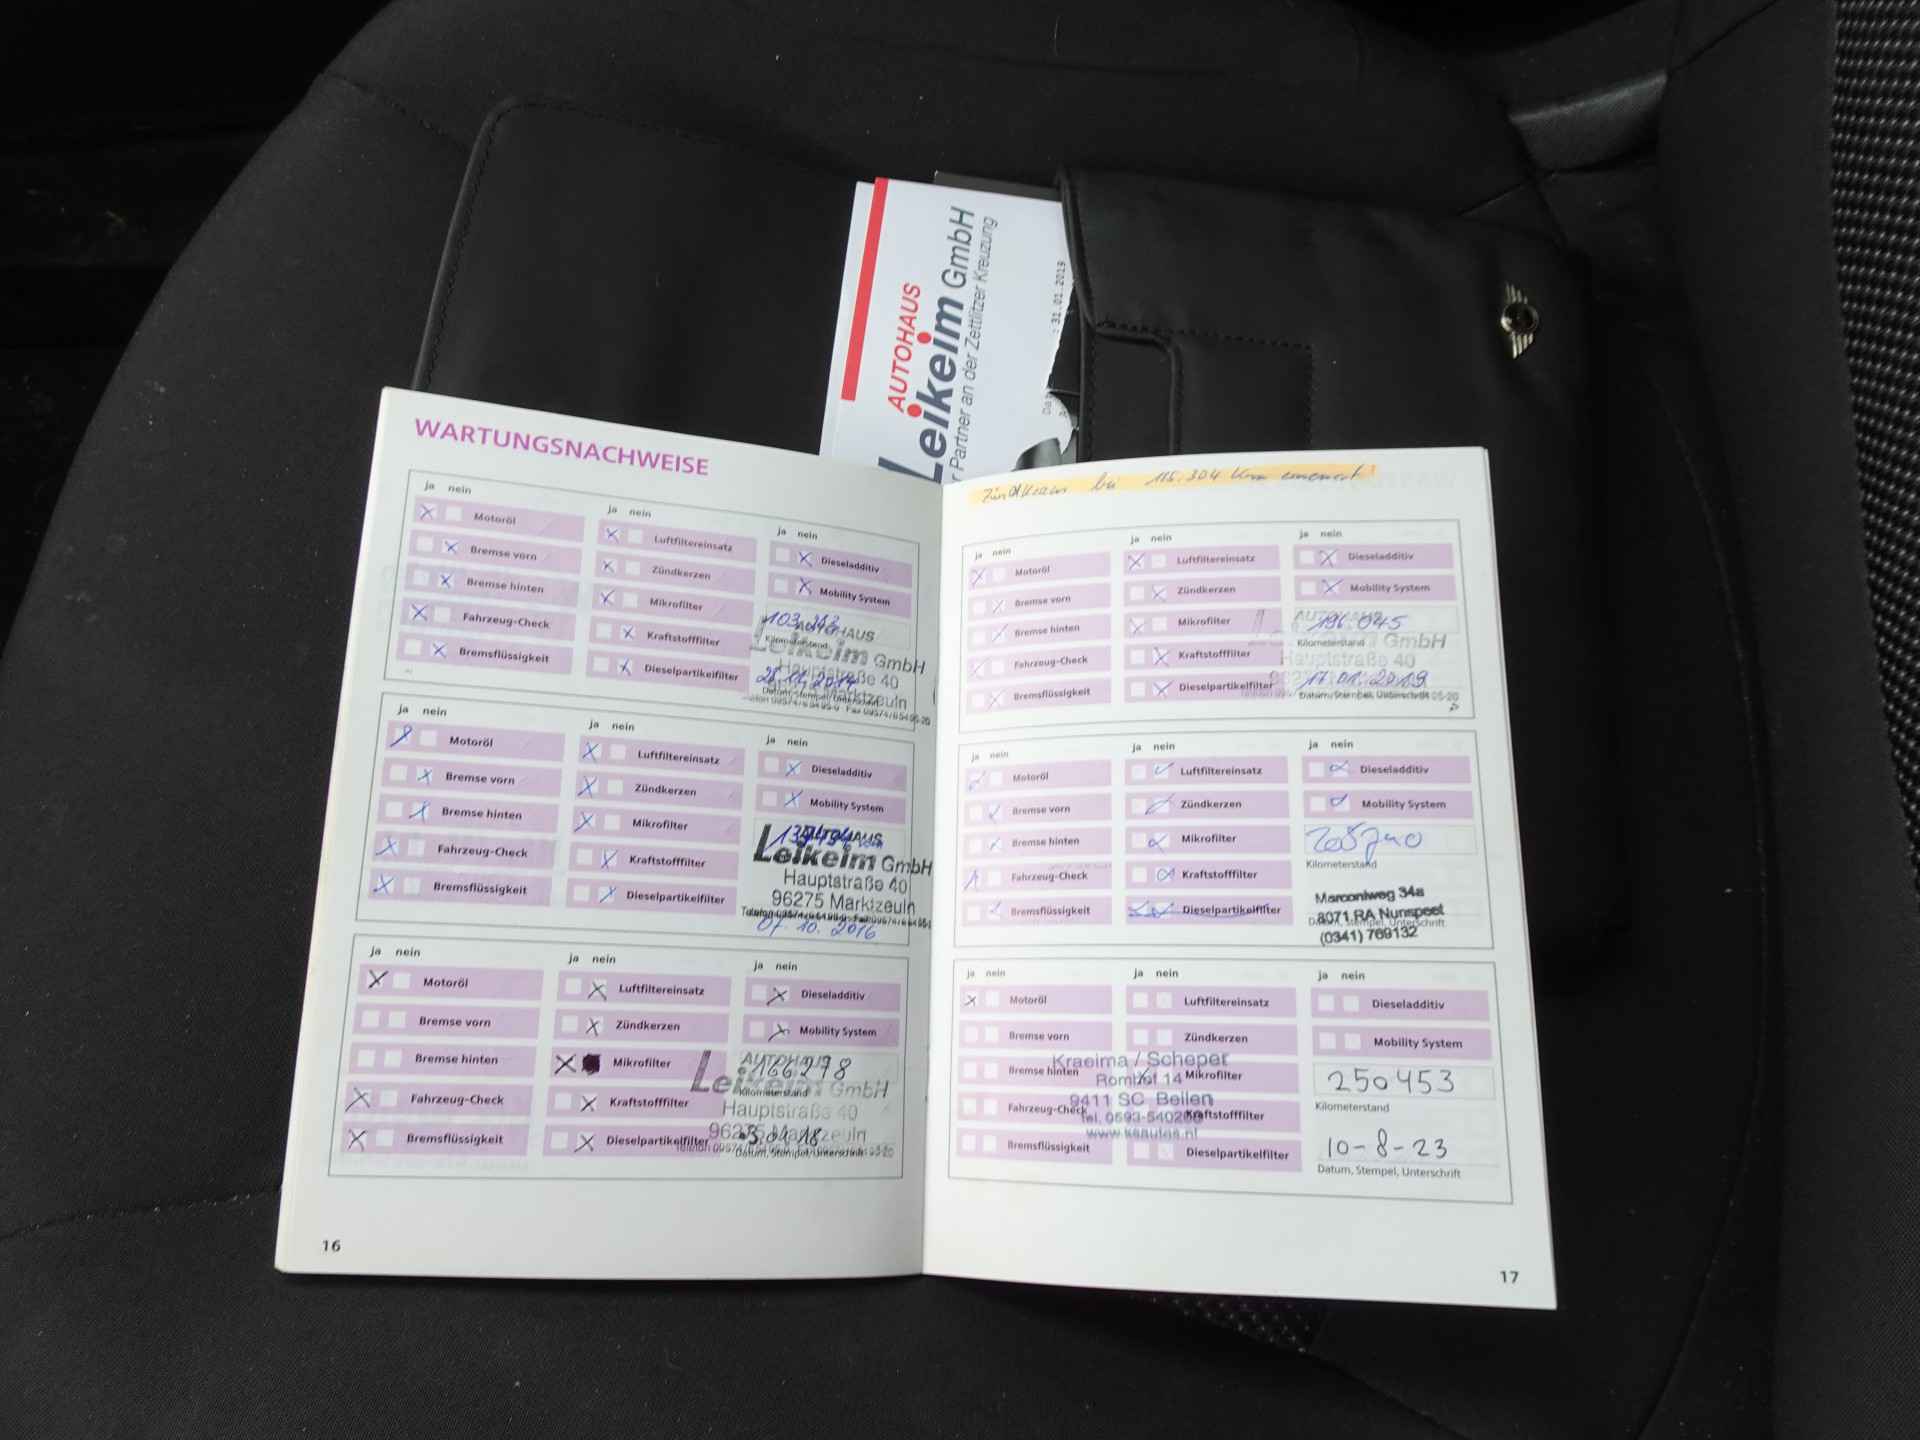 AUTOHAUS
Leikeim GmbH
r Partner an der Zettlitzer Kreuzung
: 31.01.2019
WARTUNGSNACHWEISE
ja nein
Motoröl
Bremse vorn
Bremse hinten
Fahrzeug-Check
Bremsflüssigkeit
ja nein
Luftfiltereinsatz
Zündkerzen
Mikrofilter
Kraftstofffilter
Dieselpartikelfilter
ja nein
Dieseladditiv
Mobility System
AUTOHAUS
Kilometerstand
Leikeim GmbH
Hauptstraße 40
Marktzeuln
ja nein
Motoröl
Bremse vorn
Bremse hinten
Fahrzeug-Check
Bremsflüssigkeit
ja nein
Luftfiltereinsatz
Zündkerzen
Mikrofilter
Kraftstofffilter
Dieselpartikelfilter
ja nein
Dieseladditiv
Mobility System
AUTOHAUS
Leikeim GmbH
Hauptstraße 40
96275 Marktzeuln
07. 10. 2016
ja nein
Motoröl
Bremse vorn
Bremse hinten
Fahrzeug-Check
Bremsflüssigkeit
ja nein
Luftfiltereinsatz
Zündkerzen
Mikrofilter
Kraftstofffilter
Dieselpartikelfilter
ja nein
Dieseladditiv
Mobility System
AUTOHAUS
166278
Leikeim GmbH
Kilometerstand
Hauptstraße 40
96275 Marktzeuln
Datum, Stempel, Unterschrift
16
Zündkerzen bei 115.304 km erneuert!
ja nein
Motoröl
Bremse vorn
Bremse hinten
Fahrzeug-Check
Bremsflüssigkeit
ja nein
Luftfiltereinsatz
Zündkerzen
Mikrofilter
Kraftstofffilter
Dieselpartikelfilter
ja nein
Dieseladditiv
Mobility System
AUTOHAUS
196.045
Kilometerstand
GmbH
Hauptstraße 40
17.01.2019
Datum, Stempel, Unterschrift
ja nein
Motoröl
Bremse vorn
Bremse hinten
Fahrzeug-Check
Bremsflüssigkeit
ja nein
Luftfiltereinsatz
Zündkerzen
Mikrofilter
Kraftstofffilter
Dieselpartikelfilter
ja nein
Dieseladditiv
Mobility System
Kilometerstand
Marconiweg 34a
8071 RA Nunspeet
Datum, Stempel, Unterschrift
(0341) 769132
ja nein
Motoröl
Bremse vorn
Bremse hinten
Fahrzeug-Check
Bremsflüssigkeit
ja nein
Luftfiltereinsatz
Zündkerzen
Mikrofilter
Kraftstofffilter
Dieselpartikelfilter
Kraeima / Scheper
Romhof 14
9411 SC Beilen
Tel. 0593-540266
ja nein
Dieseladditiv
Mobility System
250453
Kilometerstand
10-8-23
Datum, Stempel, Unterschrift
17